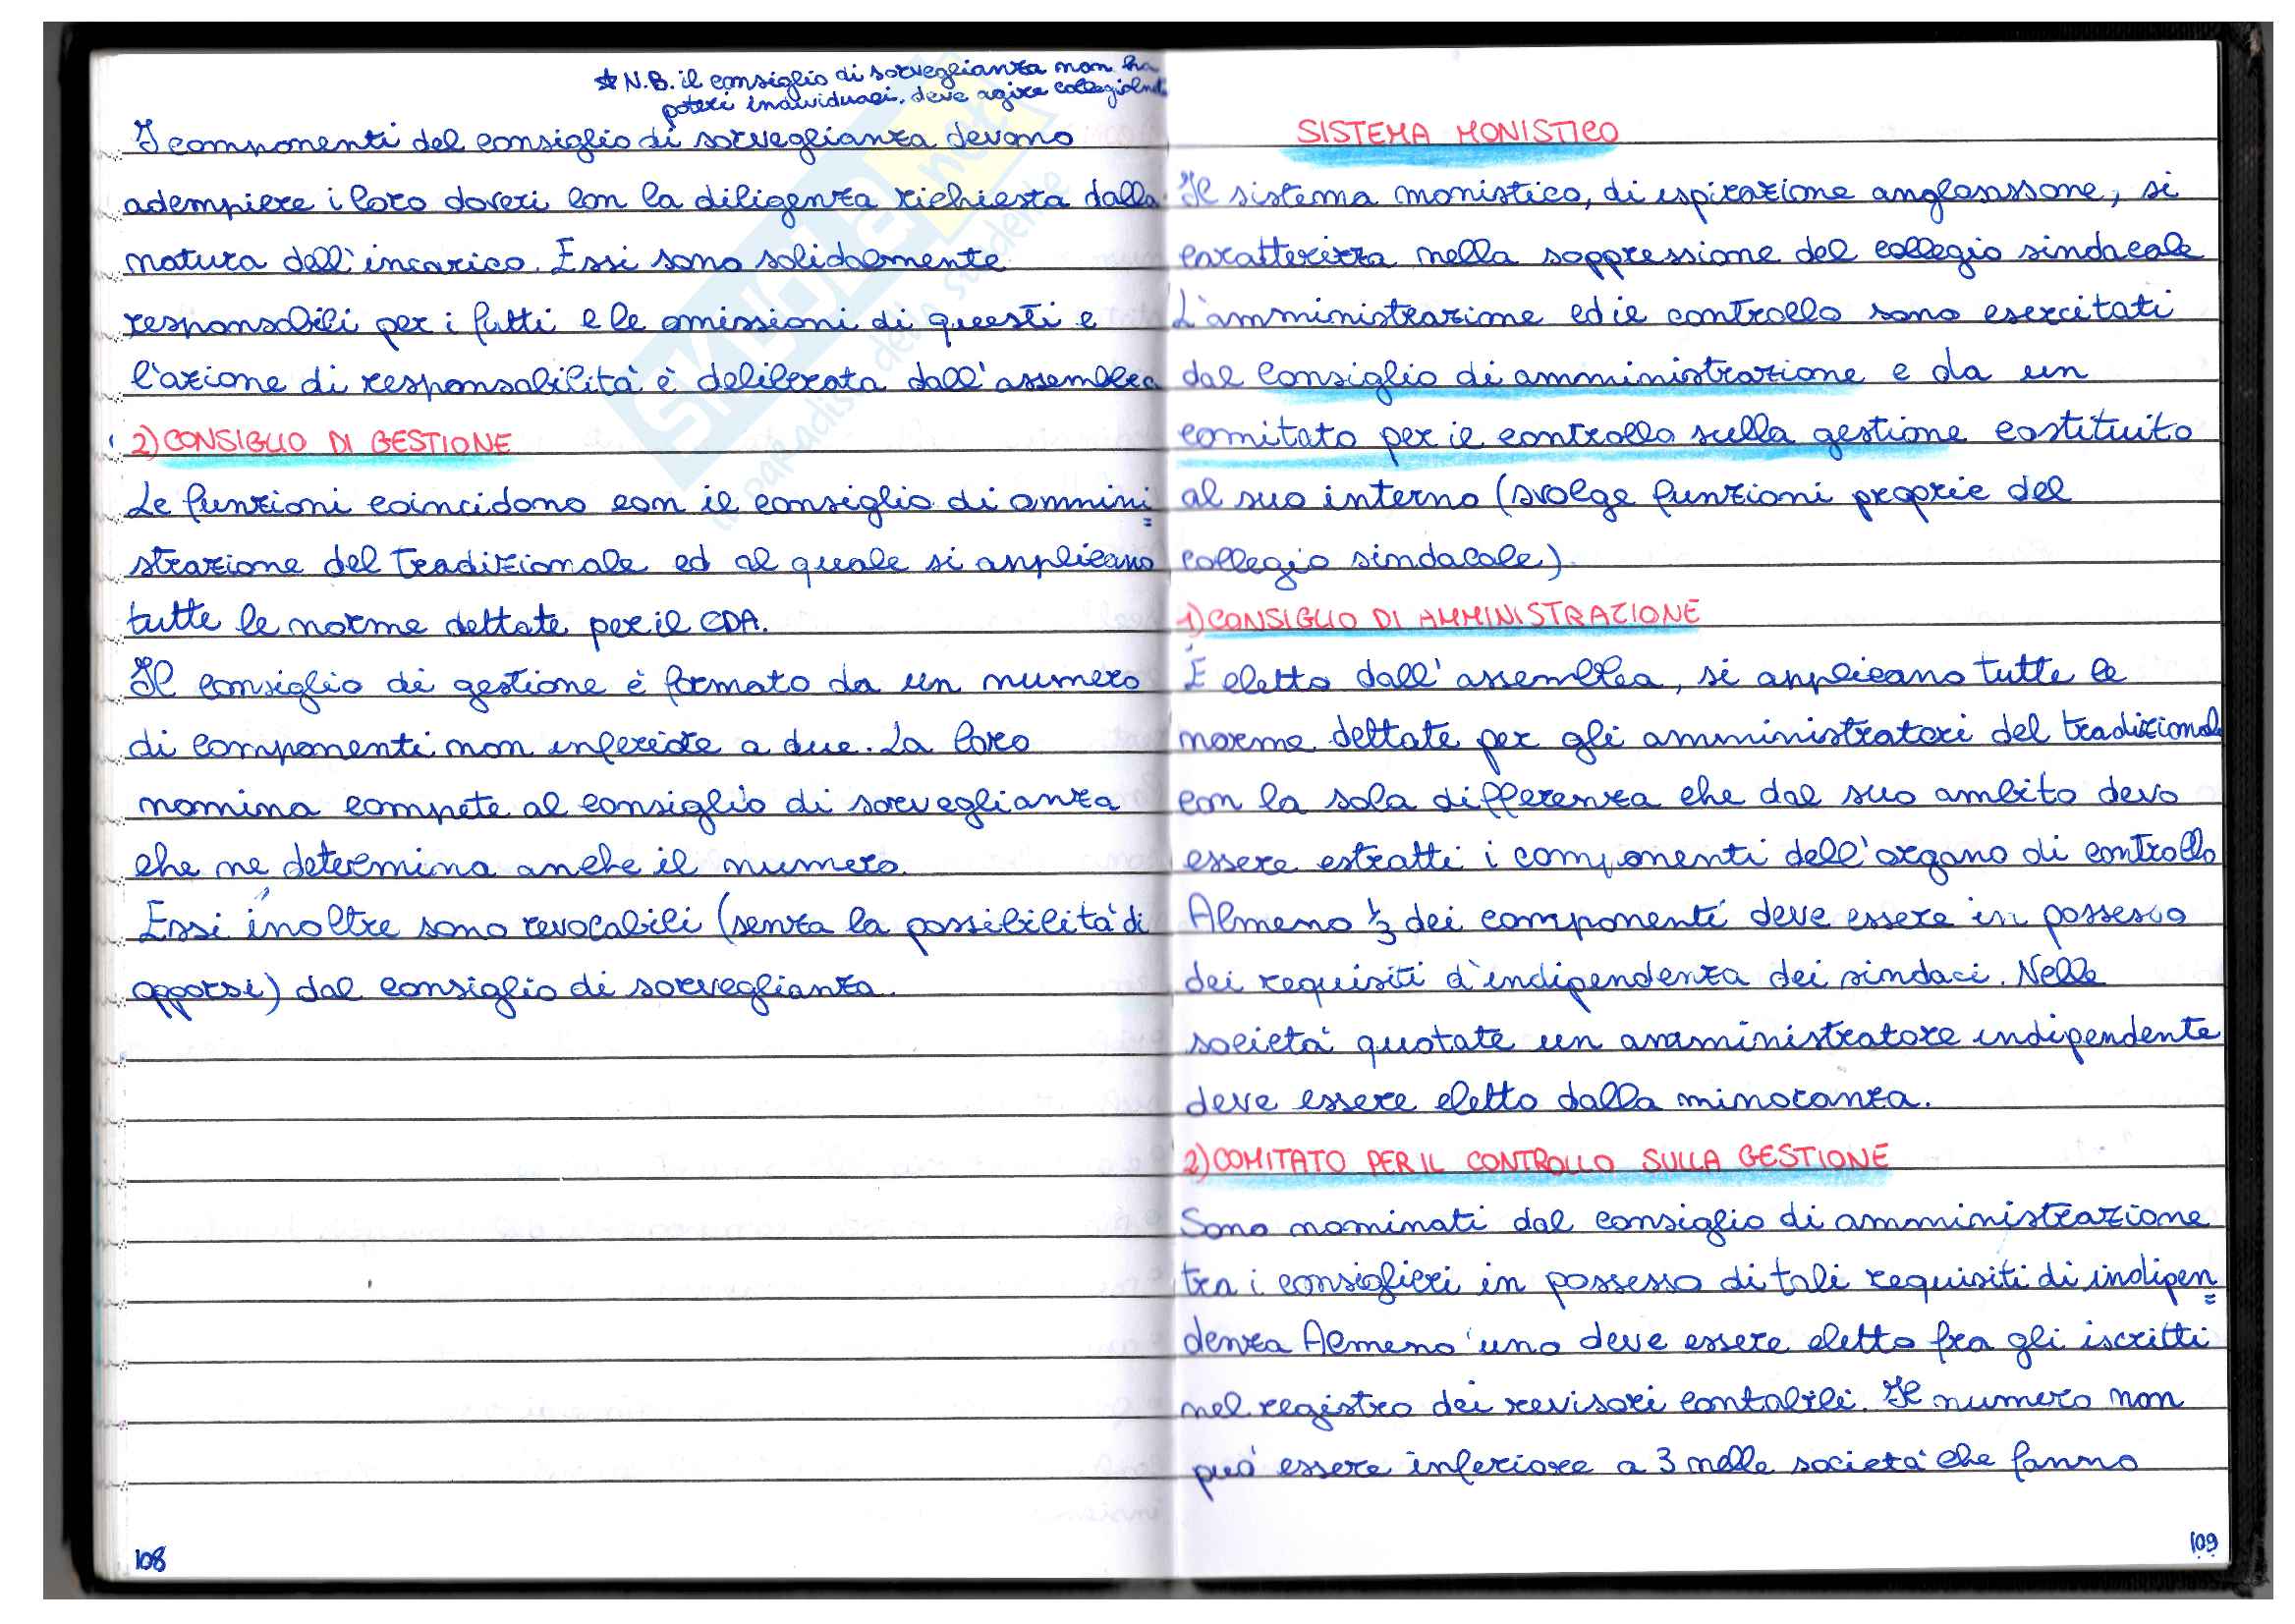 ★ N.B. il consiglio di sorveglianza non ha
poteri individuali, deve agire collegialmt.
I componenti del consiglio di sorveglianza devono
adempiere i loro doveri con la diligenza richiesta dalla
natura dell'incarico. Essi sono solidalmente
responsabili per i fatti e le omissioni di questi e
l'azione di responsabilità è deliberata dall'assemblea
2) CONSIGLIO DI GESTIONE
Le funzioni coincidono con il consiglio di ammini=
strazione del tradizionale ed al quale si applicano
tutte le norme dettate per il CDA.
Il consiglio di gestione è formato da un numero
di componenti non inferiore a due. La loro
nomina compete al consiglio di sorveglianza
che ne determina anche il numero.
Essi inoltre sono revocabili (senza la possibilità di
opporsi) dal consiglio di sorveglianza.
108
SISTEMA MONISTICO
Il sistema monistico, di ispirazione anglosassone, si
caratterizza nella soppressione del collegio sindacale
L'amministrazione ed il controllo sono esercitati
dal consiglio di amministrazione e da un
comitato per il controllo sulla gestione costituito
al suo interno (svolge funzioni proprie del
collegio sindacale).
1) CONSIGLIO DI AMMINISTRAZIONE
È eletto dall'assemblea, si applicano tutte le
norme dettate per gli amministratori del tradizionale
con la sola differenza che dal suo ambito devo
essere estratti i componenti dell'organo di controllo
Almeno 1/3 dei componenti deve essere in possesso
dei requisiti d'indipendenza dei sindaci. Nelle
società quotate un amministratore indipendente
deve essere eletto dalla minoranza.
2) COMITATO PER IL CONTROLLO SULLA GESTIONE
Sono nominati dal consiglio di amministrazione
tra i consiglieri in possesso di tali requisiti di indipen=
denza Almeno uno deve essere eletto fra gli iscritti
nel registro dei revisori contabili. Il numero non
può essere inferiore a 3 nelle società che fanno
109
SKUOLA.net
il paradiso dello studente